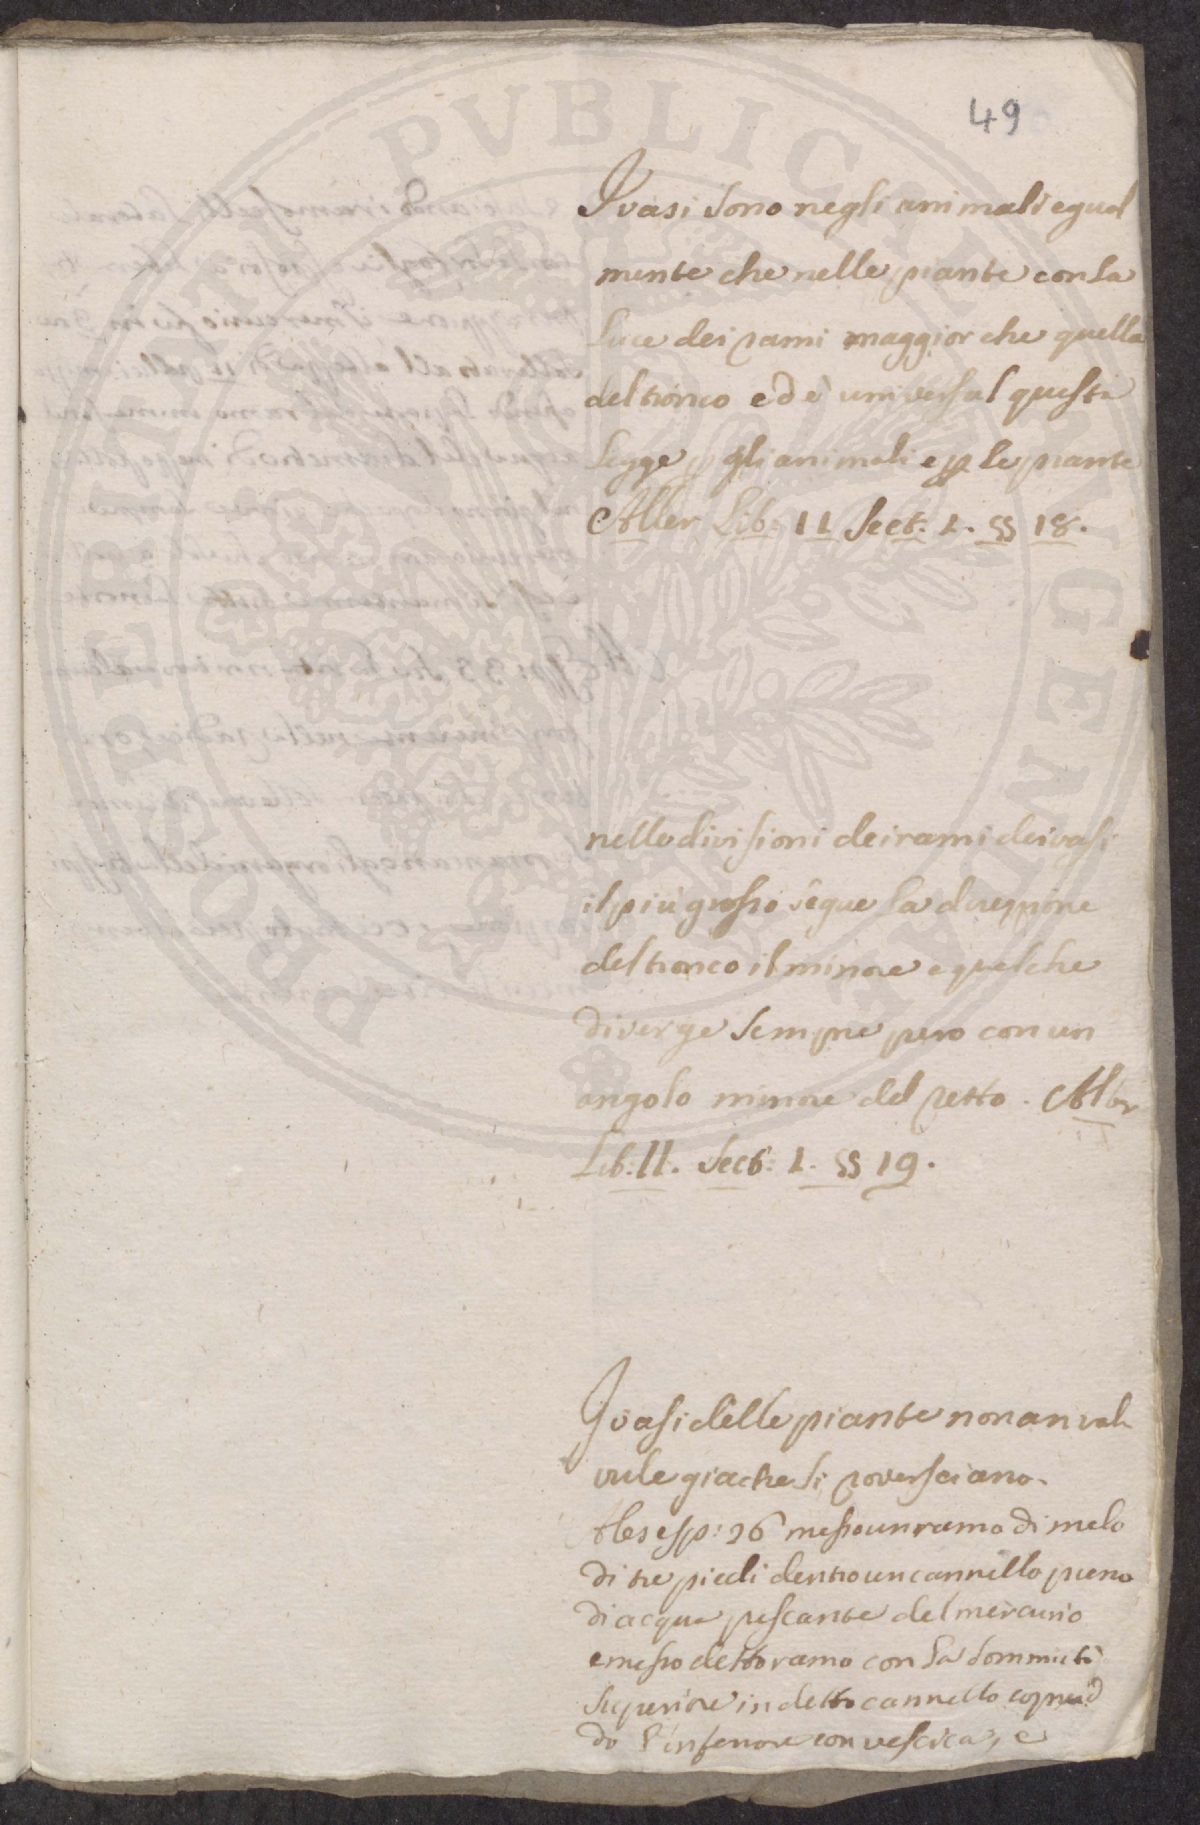 49
I vasi sono negli animali egual
mente che nelle piante con la
luce dei rami maggior che quella
del tronco ed è universal questa
legge p gli animali e p le piante
Aller Lib: II Sect: I. §§ 18.
nelle divisioni dei rami dei vasi
il più grosso segue la direzzione
del tronco il minore e quel che
diverge sempre pero con un
angolo minore del retto. Aller
Lib: II. Sect: I. §§ 19.
I vasi delle piante non an val
vule giache si roversciano.
Ales esp: 26 messo un ramo di melo
di tre piedi dentro un cannello pieno
di acqua pescante del mercurio
e messo detto ramo con la sommità
superiore in detto cannello copren
do l'inferiore con vescica, e
PROSPERITATI PVBLICAE AVGENDAE